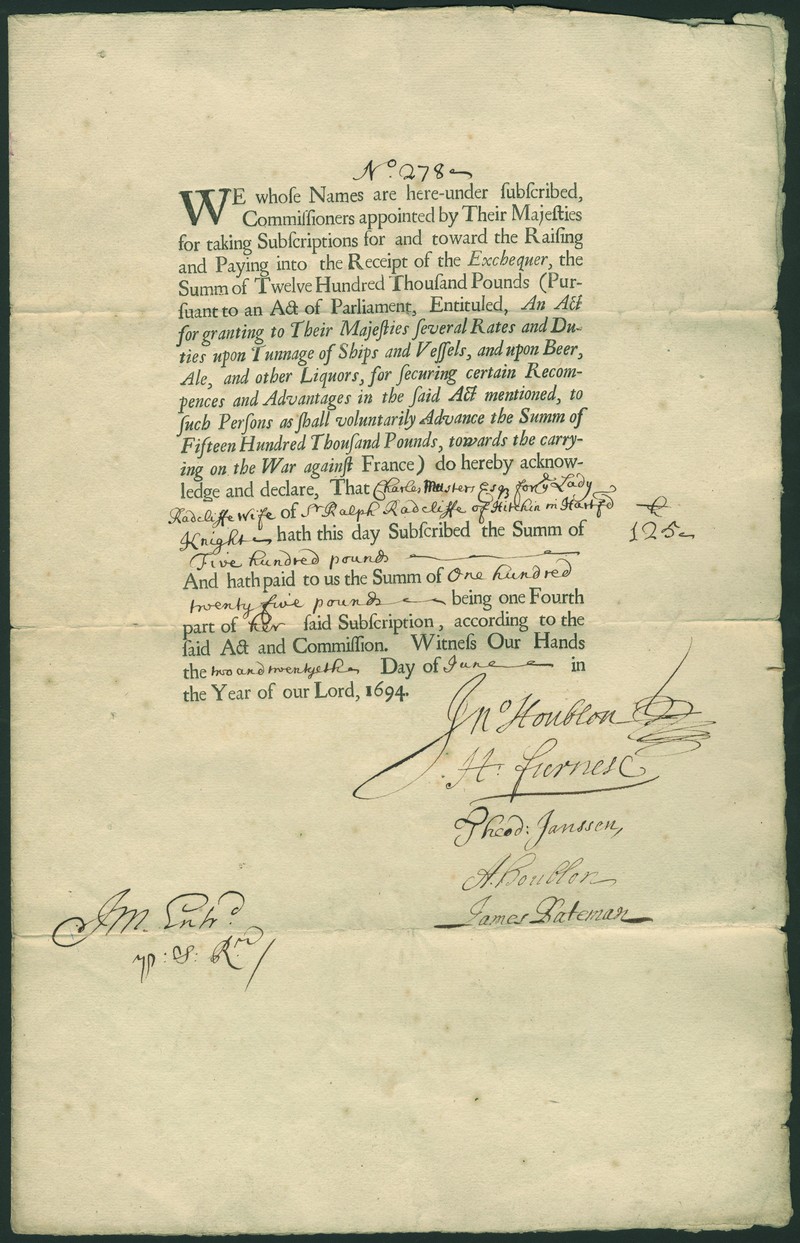 No. 278
WE whoſe Names are here-under ſubſcribed,
Commiſſioners appointed by Their Majeſties
for taking Subſcriptions for and toward the Raiſing
and Paying into the Receipt of the Exchequer, the
Summ of Twelve Hundred Thouſand Pounds (Pur-
ſuant to an Act of Parliament, Entituled, An Act
for granting to Their Majeſties ſeveral Rates and Du-
ties upon Tunnage of Ships and Veſſels, and upon Beer,
Ale, and other Liquors, for ſecuring certain Recom-
pences and Advantages in the ſaid Act mentioned, to
ſuch Perſons as ſhall voluntarily Advance the Summ of
Fifteen Hundred Thouſand Pounds, towards the carry-
ing on the War againſt France) do hereby acknow-
ledge and declare, That Charles Musters Esqr for ye Lady
Radcliffe wife of Sr Ralph Radcliffe of Hitchin in Hartfd
Knight hath this day Subſcribed the Summ of
Five hundred pounds
£
125
And hath paid to us the Summ of One hundred
twenty five pounds being one Fourth
part of her ſaid Subſcription, according to the
ſaid Act and Commiſſion. Witneſs Our Hands
the two and twentyeth Day of June in
the Year of our Lord, 1694.
Jno Houblon
H: Furnese
Theod: Janssen,
A. Houblon
James Bateman
JM. Entrd